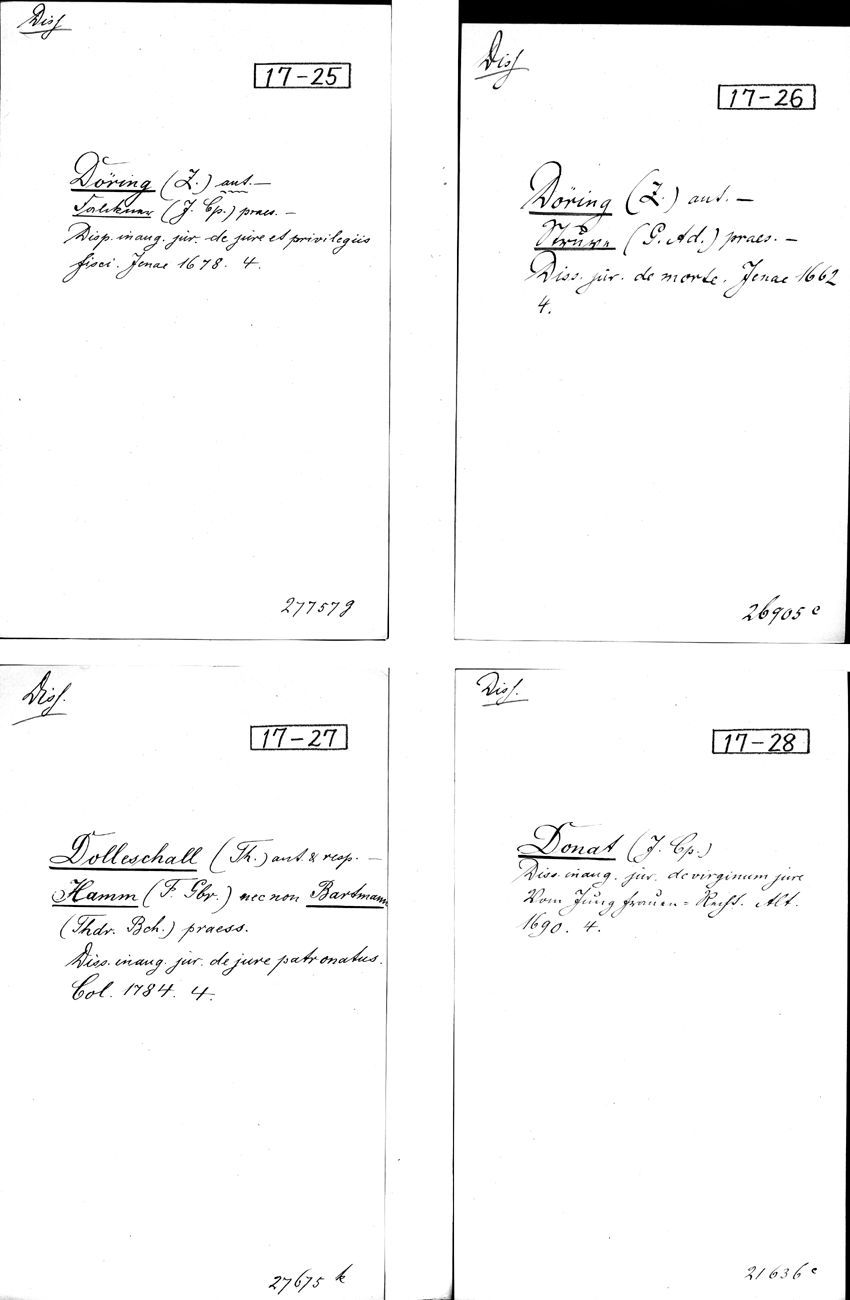 Diss
17-25
Döring (Z.) aut. —
Falckner (J. Cp.) praes. —
Disp. inaug. jur. de jure et privilegiis
fisci. Jenae 1678. 4.
27757 g
Diss
17-26
Döring (Z.) aut. —
Struve (G. Ad.) praes. —
Diss. jur. de morte. Jenae 1662
4.
26905 c
Diss.
17-27
Dolleschall (Th.) aut. & resp. —
Hamm (F. Gbr.) nec non Bartmann
(Thdr. Bch.) praess.
Diss. inaug. jur. de jure patronatus.
Col. 1784. 4.
27675 k
Diss.
17-28
Donat (J. Cp.)
Diss. inaug. jur. de virginum jure
Vom Jungfrauen=Recht. Alt.
1690. 4.
21636 c